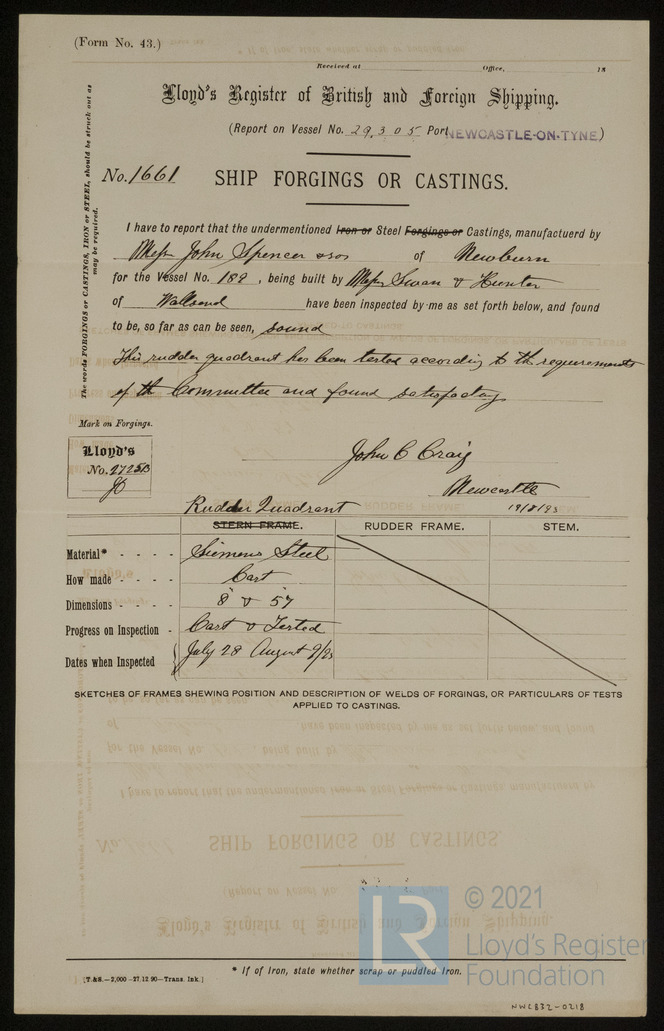 (Form No. 43.)
Received at Office, 18
Lloyd's Register of British and Foreign Shipping.
(Report on Vessel No. 29,305 Port NEWCASTLE-ON-TYNE)
No. 1661 SHIP FORGINGS OR CASTINGS.
The words FORGINGS or CASTINGS, IRON or STEEL, should be struck out as
may be required.
I have to report that the undermentioned Iron or Steel Forgings or Castings, manufactuerd by
Messrs John Spencer & Sons of Newburn
for the Vessel No. 189, being built by Messrs Swan & Hunter
of Wallsend have been inspected by me as set forth below, and found
to be, so far as can be seen, sound
This rudder quadrant has been tested according to the requirements
of the Committee and found satisfactory
Mark on Forgings.
Lloyd's
No. 2725B
John C Craig
Newcastle
19/8/93
Rudder Quadrant
STERN FRAME. RUDDER FRAME. STEM.
Material* - - - - Siemens Steel
How made - - - - Cast
Dimensions - - - - 8" & 57
Progress on Inspection - Cast & Tested
Dates when Inspected July 28 August 9/93
SKETCHES OF FRAMES SHEWING POSITION AND DESCRIPTION OF WELDS OF FORGINGS, OR PARTICULARS OF TESTS
APPLIED TO CASTINGS.
© 2021
LR Lloyd's Register
Foundation
* If of Iron, state whether scrap or puddled Iron.
[T.&S.—2,000 —27.12.90—Trans. Ink.]
NWC832-0218